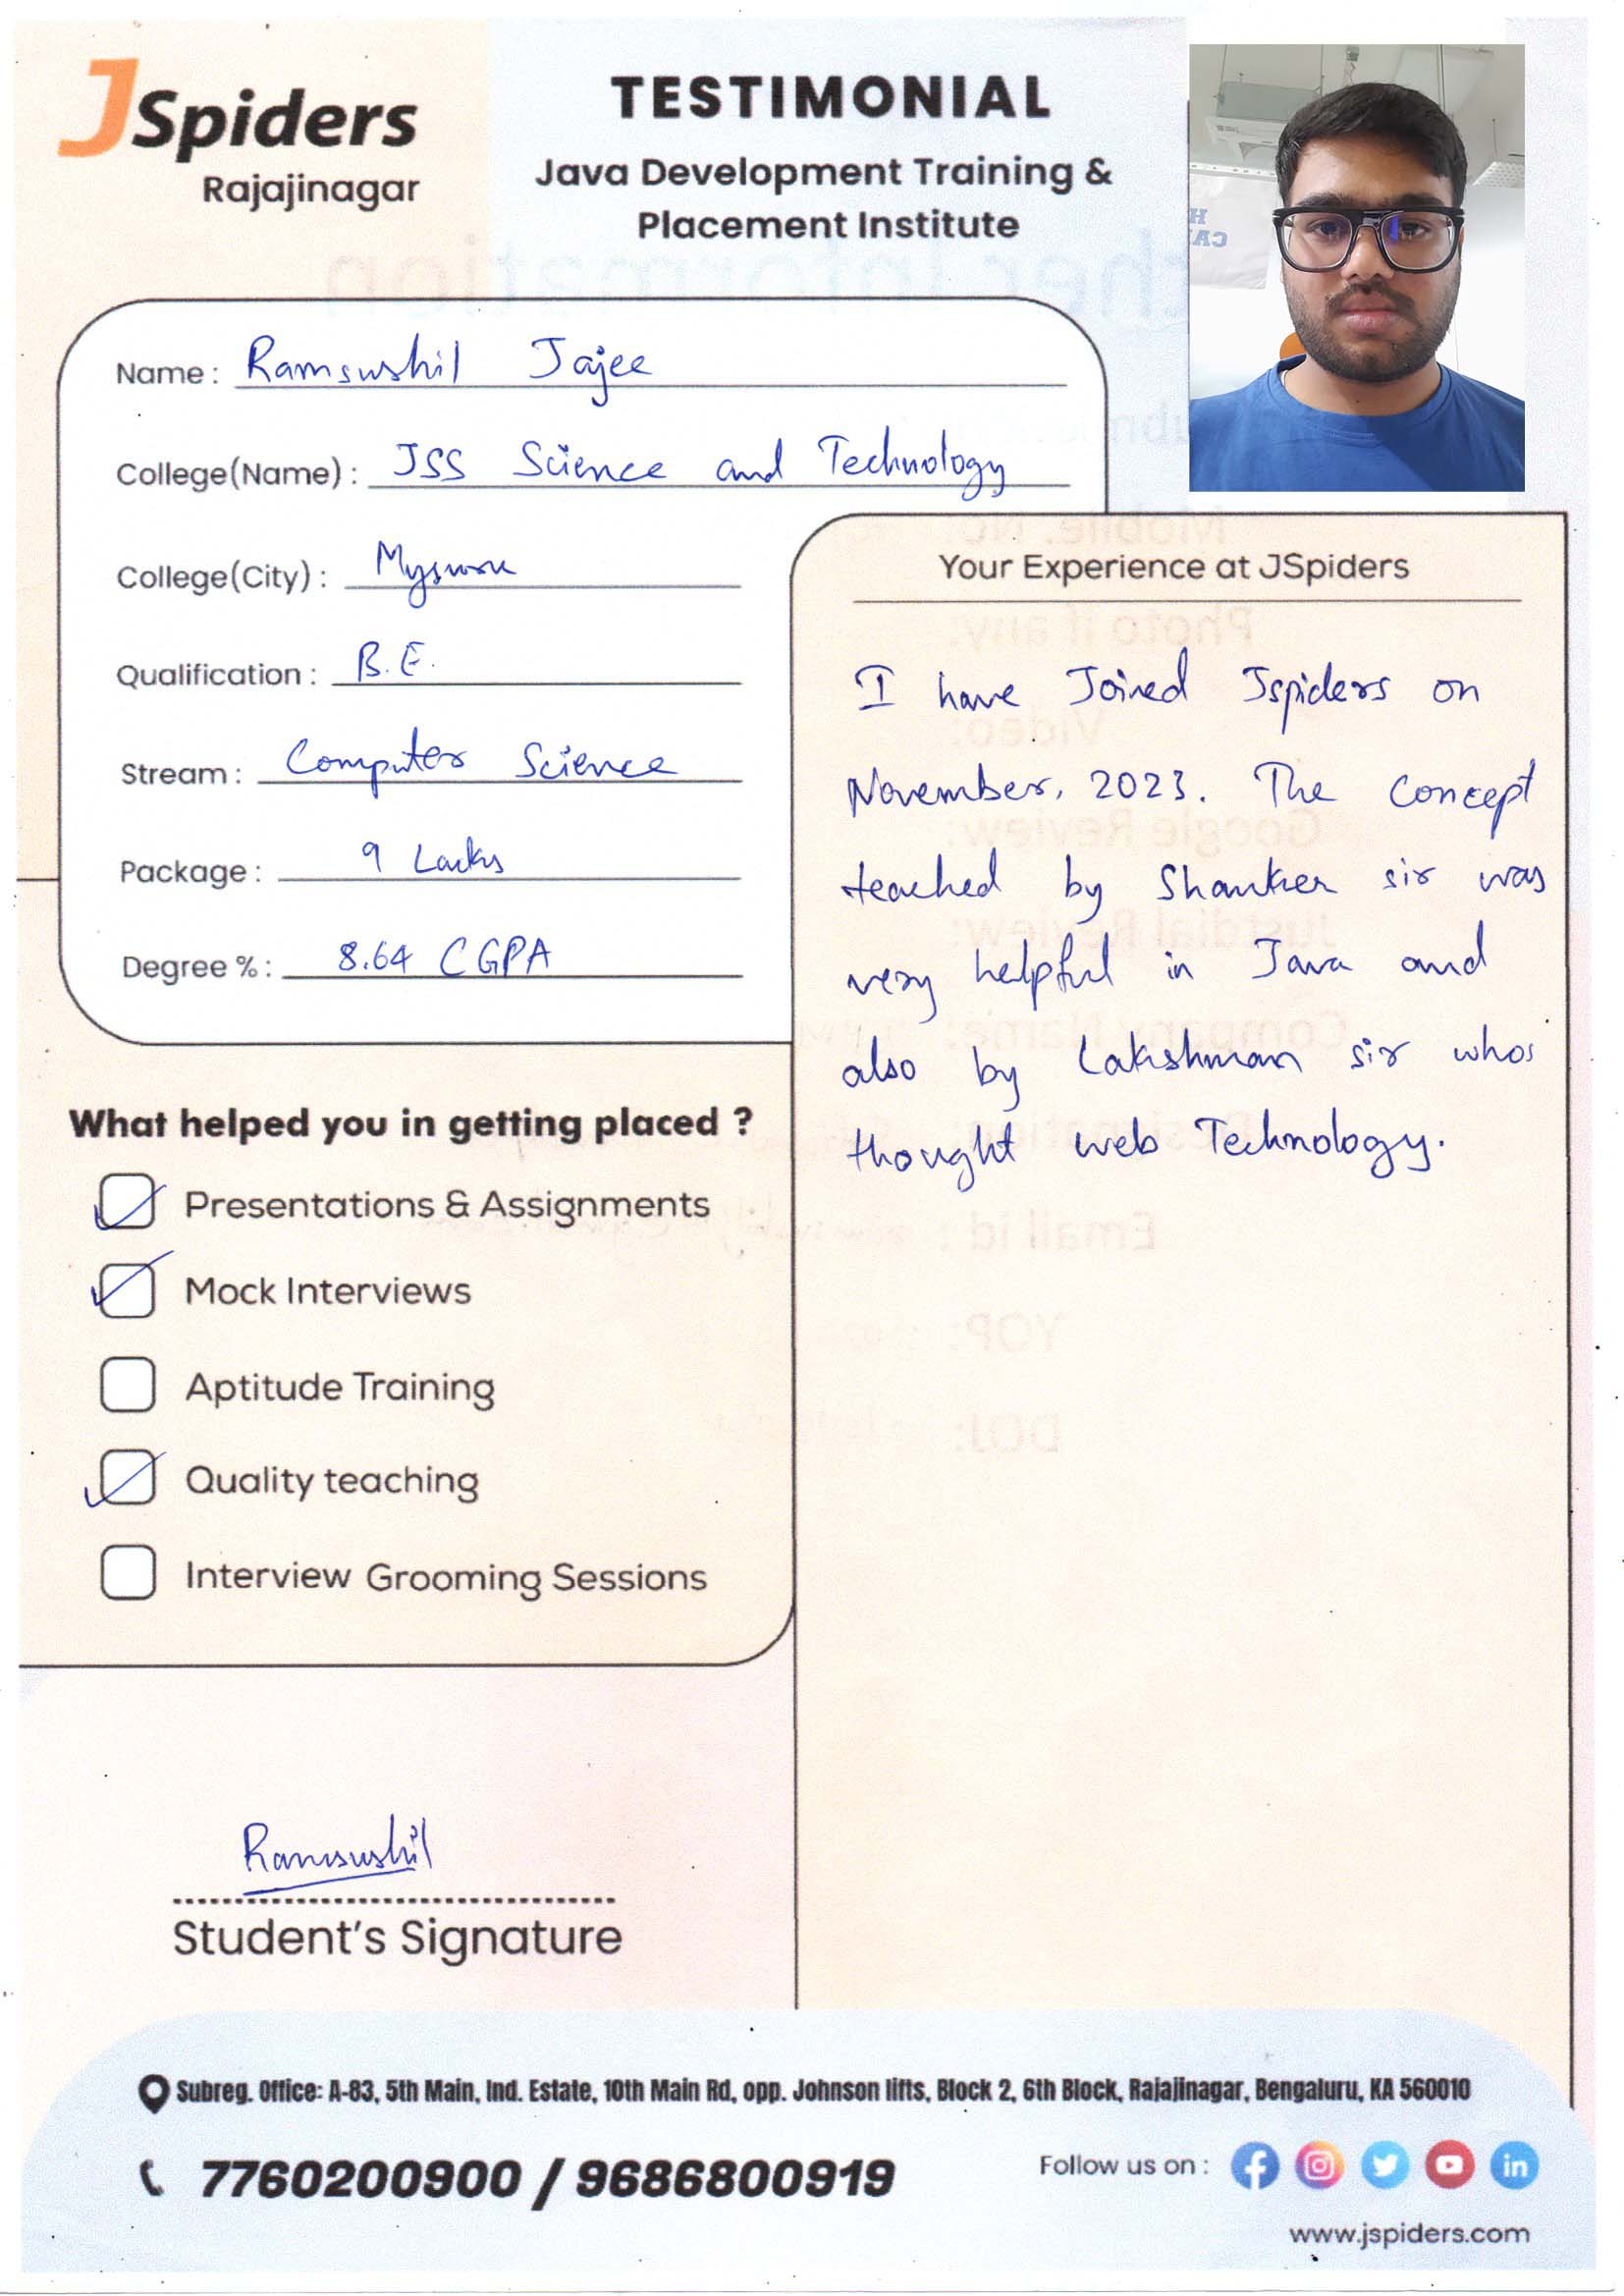 JSpiders
Rajajinagar
TESTIMONIAL
Java Development Training &
Placement Institute
Name : Ramsushil Jajee
College(Name) : JSS Science and Technology
College(City) :
Qualification : B.E.
Stream : Computer Science
Package : 9 Lacks
Degree % : 8.64 CGPA
What helped you in getting placed ?
Presentations & Assignments
Mock Interviews
Aptitude Training
Quality teaching
Interview Grooming Sessions
Your Experience at JSpiders
I have Joined Jspiders on
November, 2023. The Concept
teached by Shanker sir was
very helpful in Java and
also by Lakshman sir whos
thought web Technology.
Ramsushil
Student's Signature
Subreg. Office: A-83, 5th Main, Ind. Estate, 10th Main Rd, opp. Johnson lifts, Block 2, 6th Block, Rajajinagar, Bengaluru, KA 560010
7760200900 / 9686800919
Follow us on :
www.jspiders.com